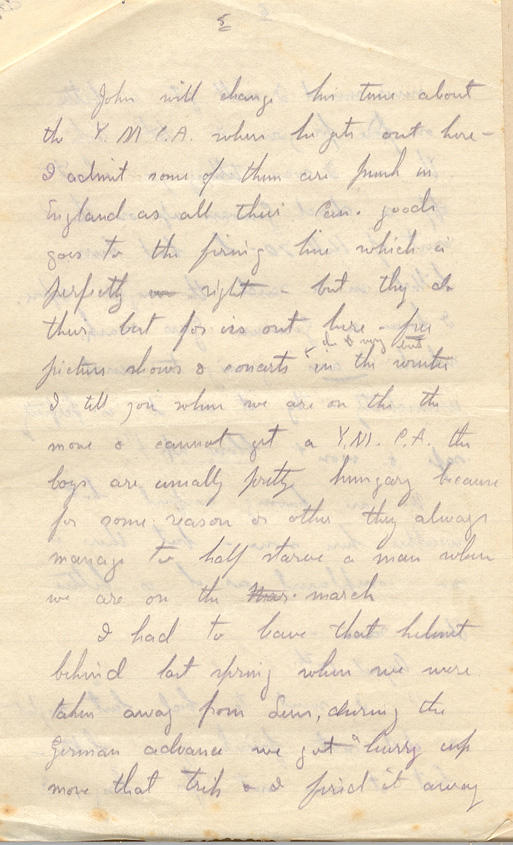 5
John will change his tune about
the Y M C.A. when he gets out here -
I admit some of them are punk in
England as all their Can. goods
goes to the firing line which is
perfectly right - but they do
their best for us out here - free
picture shows & concerts in the winter
I tell you when we are on the the
move & cannot get a Y.M. C.A. the
boys are usually pretty hungary because
for some reason or other they always
manage to half starve a man when
we are on the Mar. march
I had to leave that helmet
behind last spring when we were
taken away from Lens, during the
German advance we got "hurry up
move that trip & I fired it away